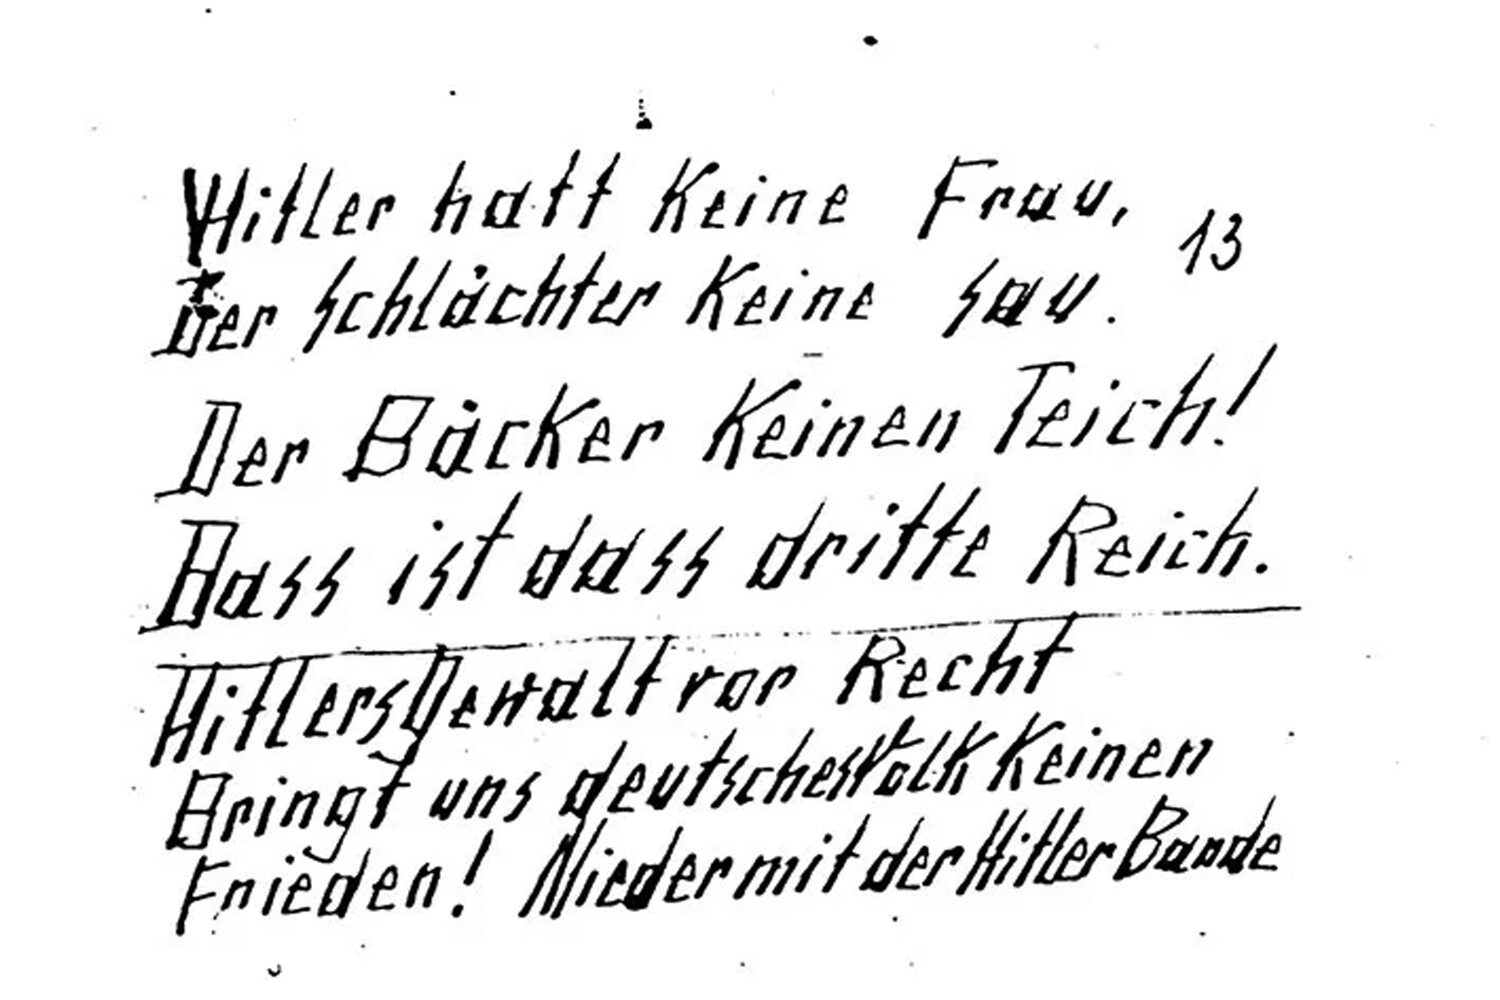 Hitler hatt Keine Frau,
13
Der Schlächter Keine Sau.
Der Bäcker Keinen Teich!
Dass ist dass dritte Reich.
Hitlers Gewalt vor Recht
Bringt uns deutsches Volk Keinen
Frieden! Nieder mit der Hitler Bande